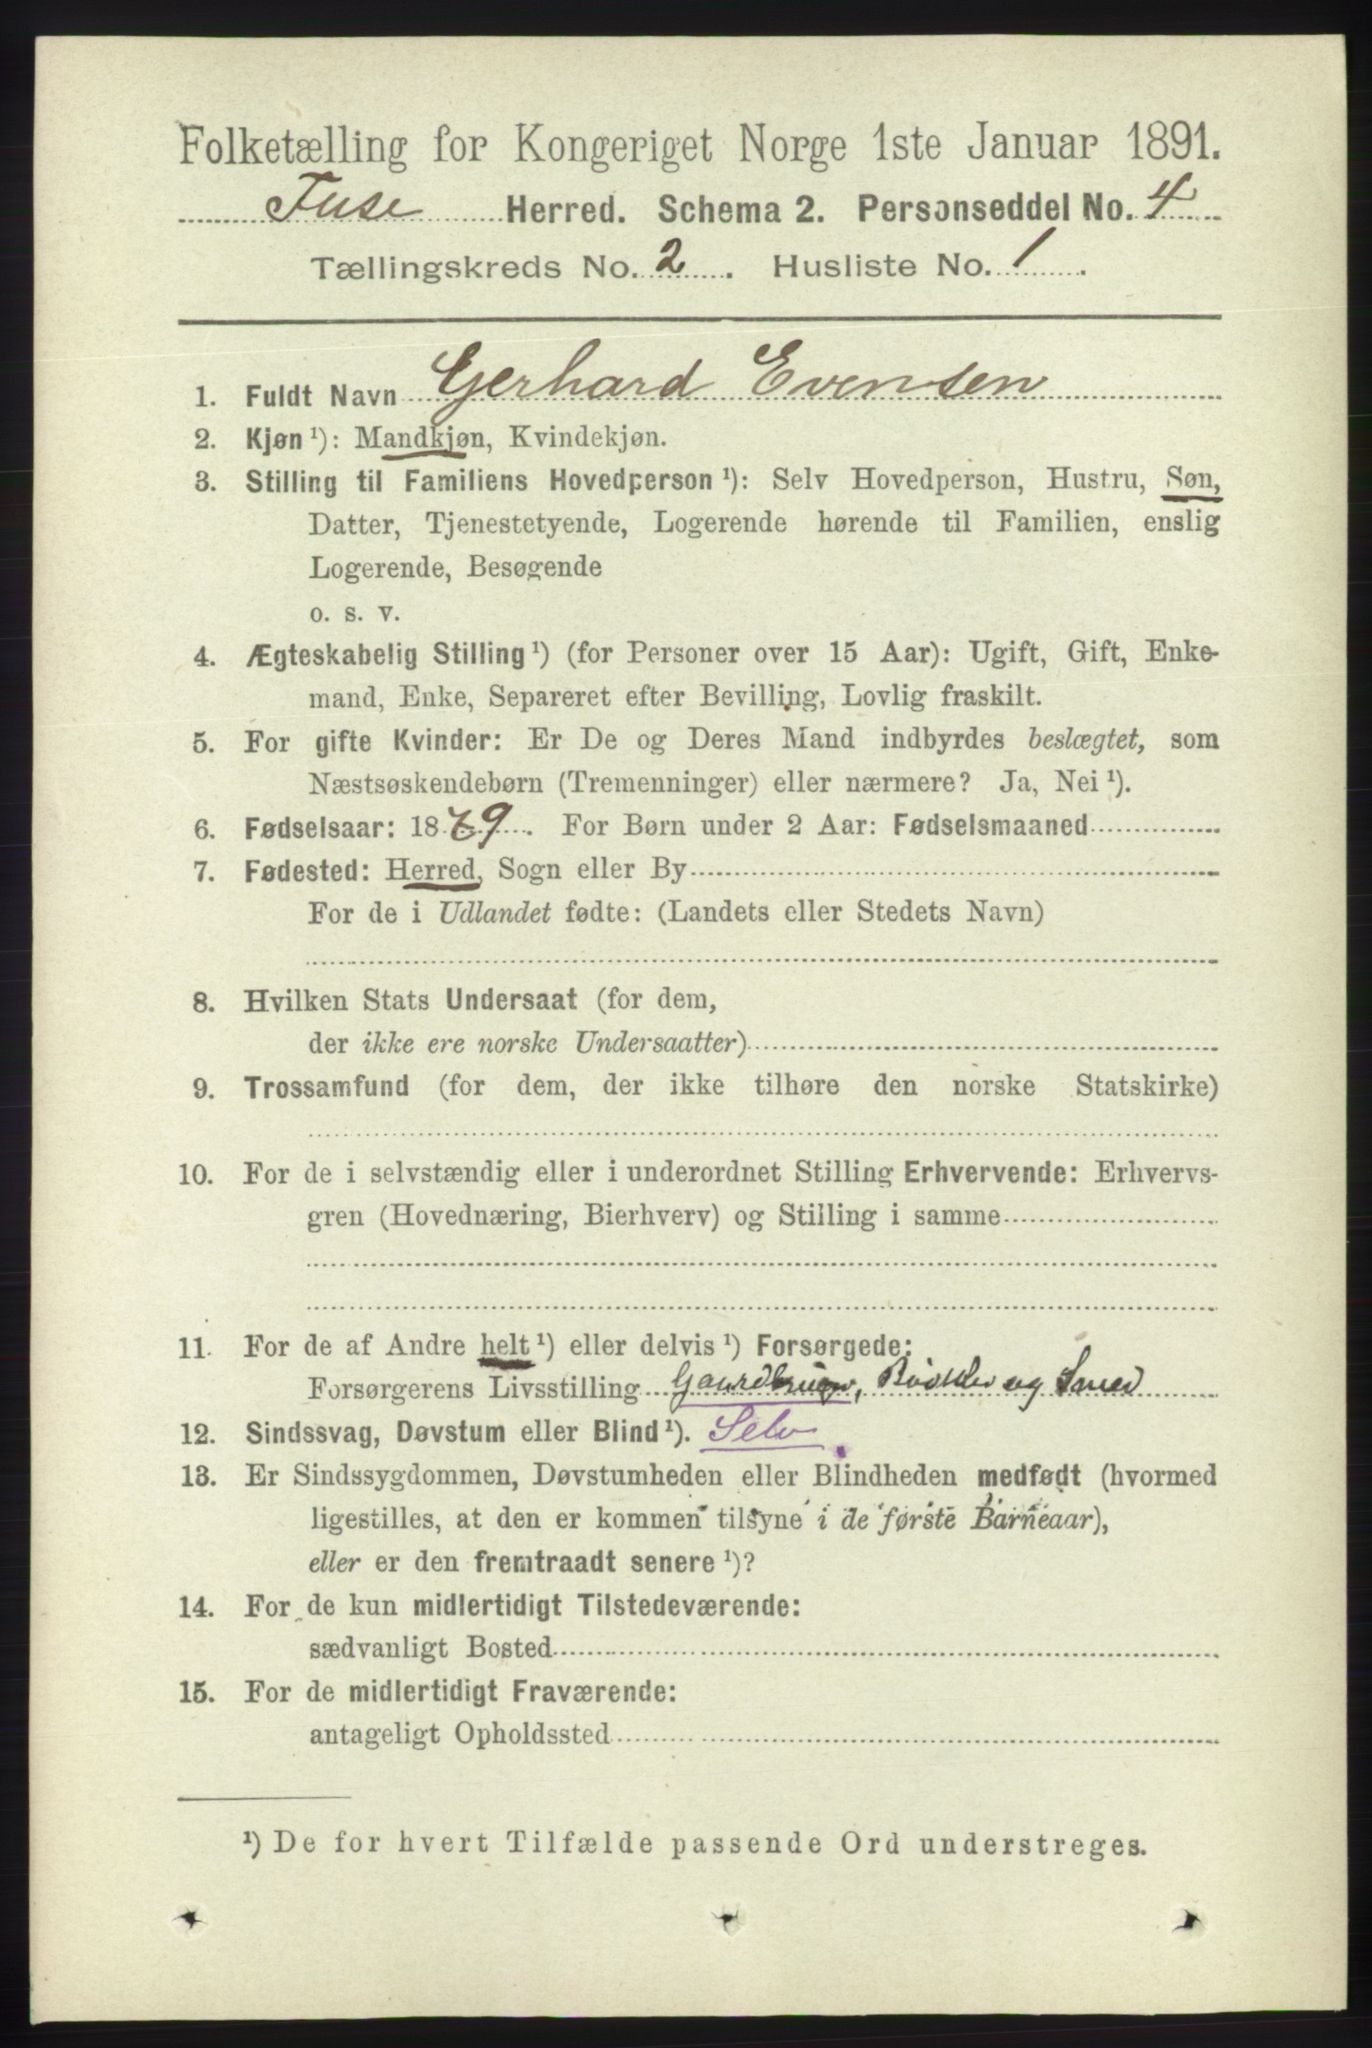 Folketælling for Kongeriget Norge 1ste Januar 1891.
Fuse Herred. Schema 2. Personseddel No. 4
Tællingskreds No. 2. Husliste No. 1.
1. Fuldt Navn Gerhard Evensen
2. Kjøn ¹): Mandkjøn, Kvindekjøn.
3. Stilling til Familiens Hovedperson ¹): Selv Hovedperson, Hustru, Søn,
Datter, Tjenestetyende, Logerende hørende til Familien, enslig
Logerende, Besøgende
o. s. v.
4. Ægteskabelig Stilling ¹) (for Personer over 15 Aar): Ugift, Gift, Enke-
mand, Enke, Separeret efter Bevilling, Lovlig fraskilt.
5. For gifte Kvinder: Er De og Deres Mand indbyrdes beslægtet, som
Næstsøskendebørn (Tremenninger) eller nærmere? Ja, Nei ¹).
6. Fødselsaar: 1879. For Børn under 2 Aar: Fødselsmaaned
7. Fødested: Herred, Sogn eller By
For de i Udlandet fødte: (Landets eller Stedets Navn)
8. Hvilken Stats Undersaat (for dem,
der ikke ere norske Undersaatter)
9. Trossamfund (for dem, der ikke tilhøre den norske Statskirke)
10. For de i selvstændig eller i underordnet Stilling Erhvervende: Erhvervs-
gren (Hovednæring, Bierhverv) og Stilling i samme
11. For de af Andre helt ¹) eller delvis ¹) Forsørgede:
Forsørgerens Livsstilling Gaardbruger, Bødker og
12. Sindssvag, Døvstum eller Blind ¹). Selv
13. Er Sindssygdommen, Døvstumheden eller Blindheden medfødt (hvormed
ligestilles, at den er kommen tilsyne i de første Barneaar),
eller er den fremtraadt senere ¹)?
14. For de kun midlertidigt Tilstedeværende:
sædvanligt Bosted
15. For de midlertidigt Fraværende:
antageligt Opholdssted
¹) De for hvert Tilfælde passende Ord understreges.